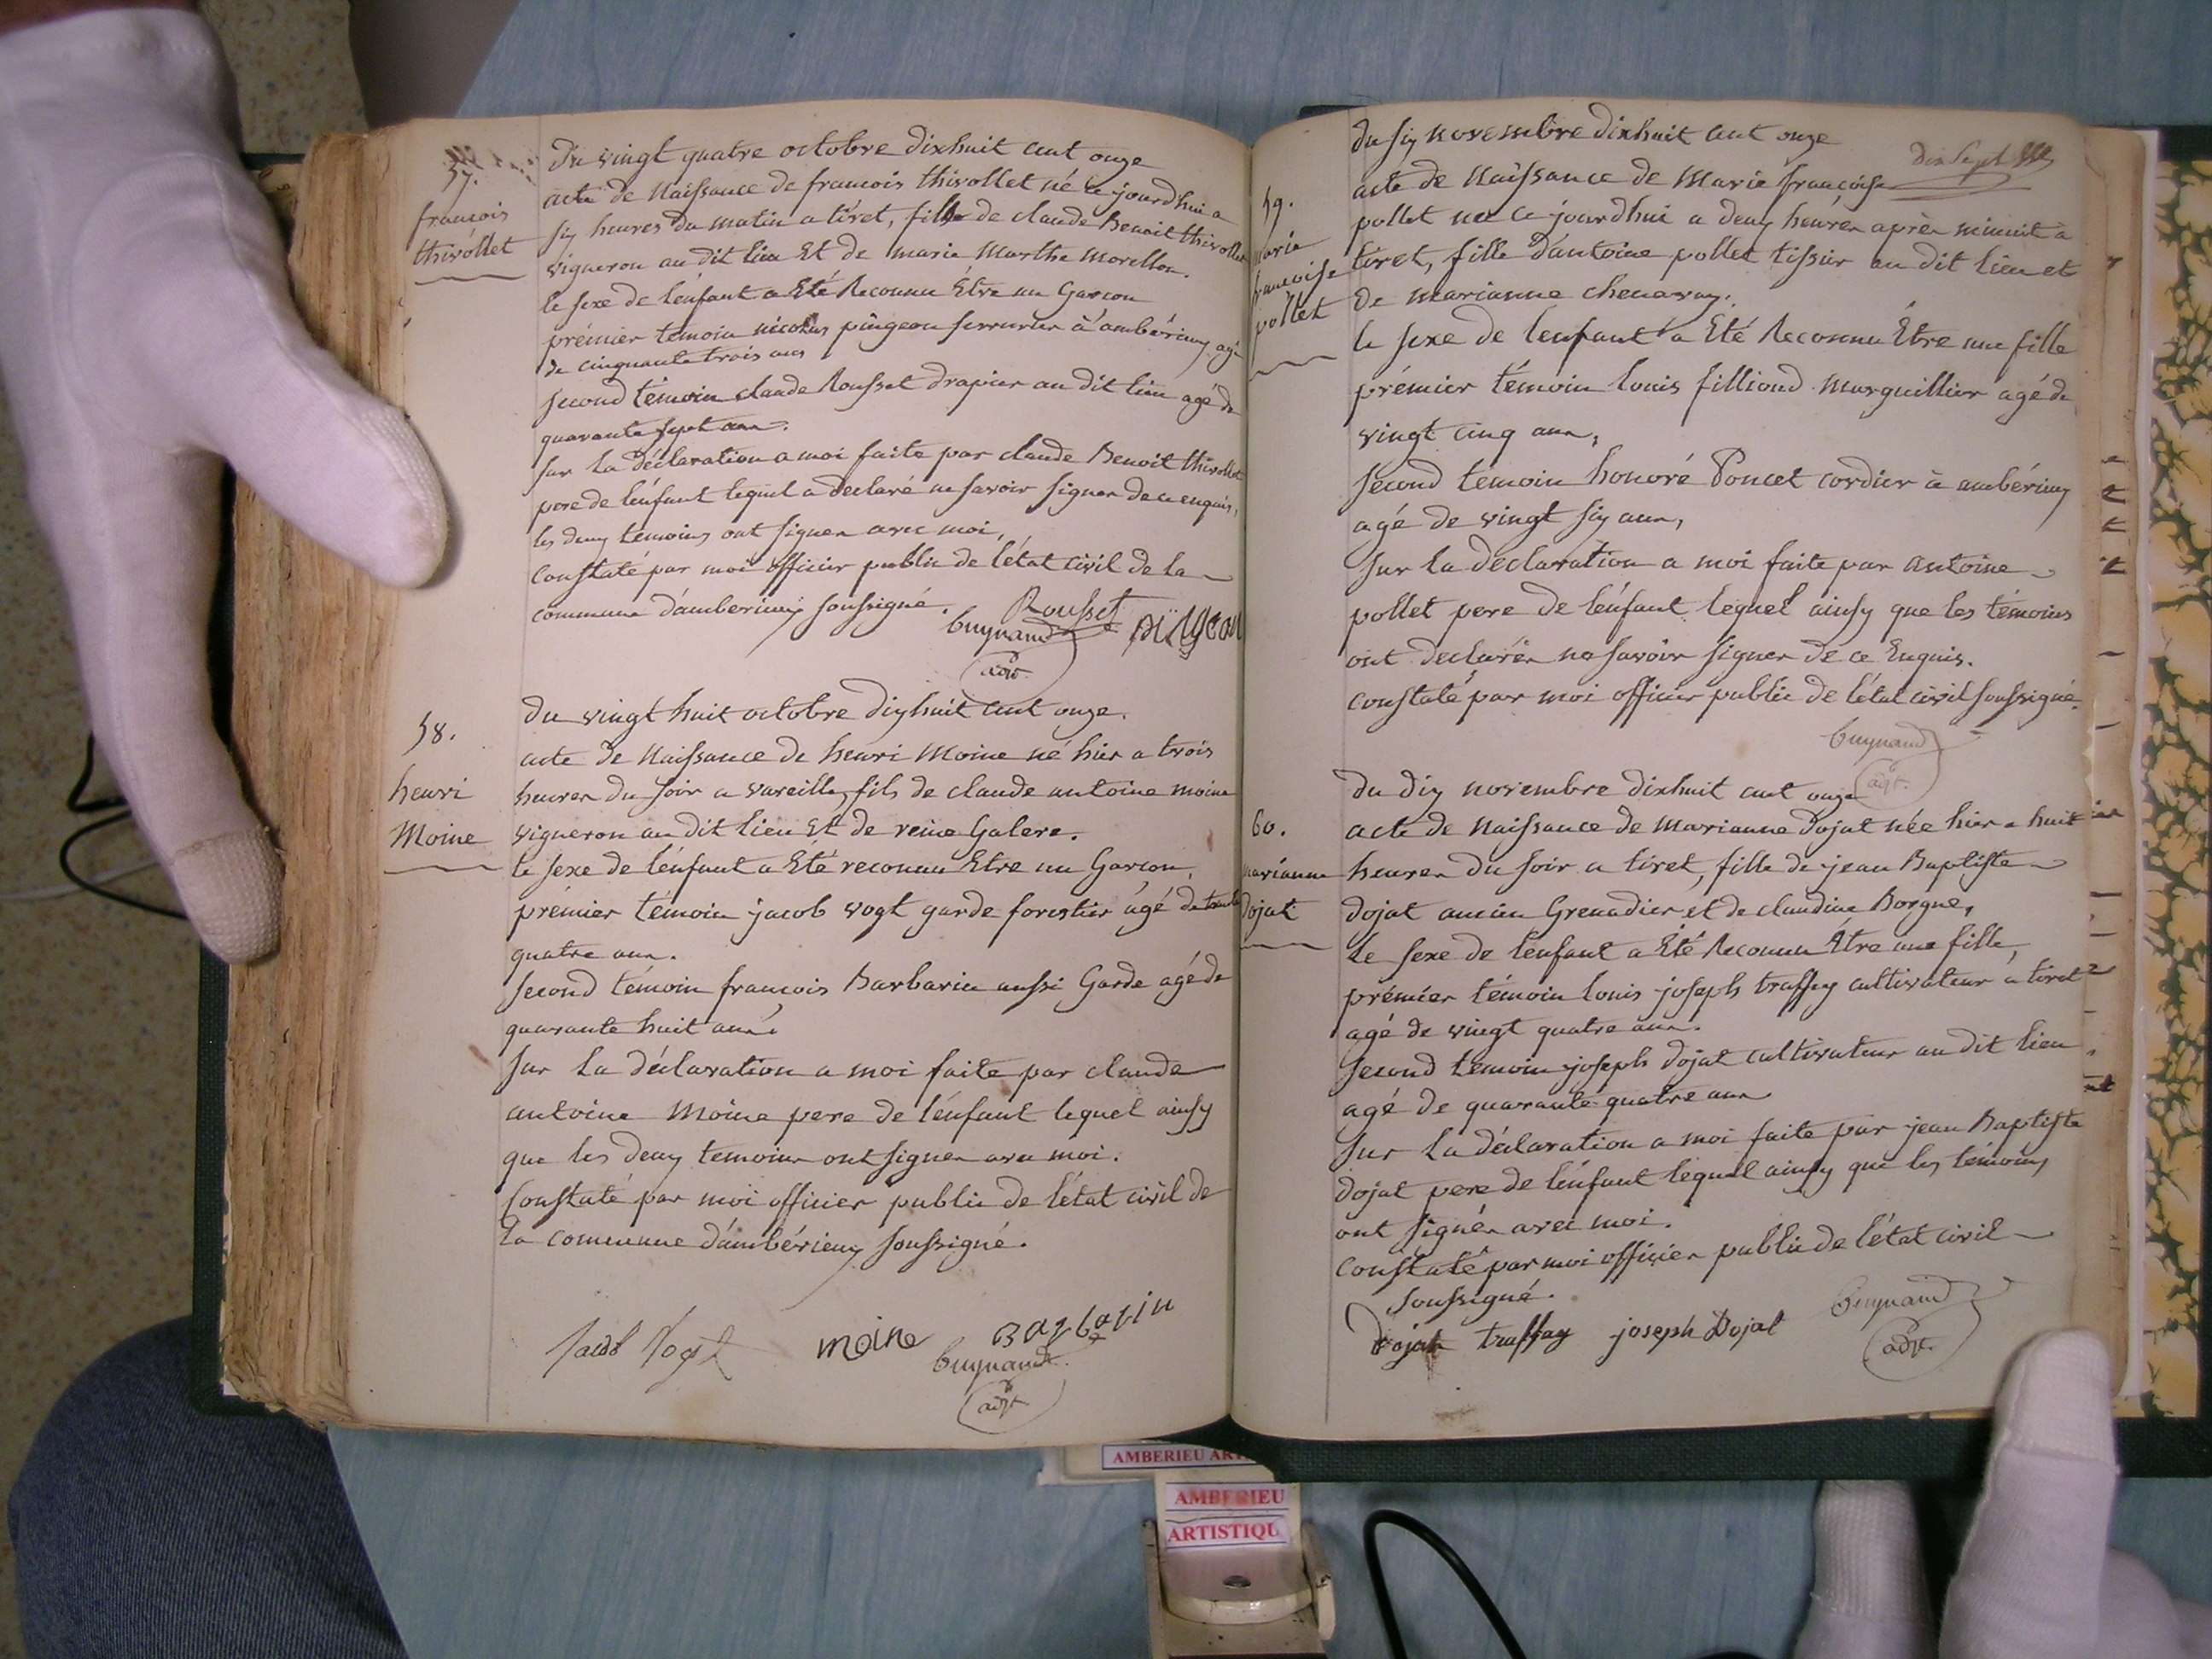 57.
francois
thivollet
Du vingt quatre octobre dixhuit cent onze
acte de Naissance de francois thivollet né ce jourdhui a
six heures du matin a tiret, fils de claude Benoit thivollet
vigneron au dit lieu Et de marie Marthe Morellon.
le sexe de l'énfant a Eté Reconnu Être un Garcon
prémier témoin nicolas pingeon serrurier à ambérieux agé
de cinquante trois ans
second témoin claude Rousset drapier au dit lieu agé de
quarante sept ans.
sur la déclaration a moi faite par claude Benoit thivollet
pere de l'énfant lequel a declaré ne savoir signer de ce enquis,
les deux temoins ont signer avec moi,
constaté par moi officier public de l'état civil de la
commune d'amberieux soussigné.
Rousset
Guynand
pingeon
adjt.
58.
henri
Moine
du vingt huit octobre dixhuit cent onze.
acte de Naissance de henri Moine né hier a trois
heures du soir a vareille, fils de claude antoine moine
vigneron au dit lieu Et de reine Galere.
le sexe de l'énfant a Eté reconnu Etre un Garcon,
prémier témoin jacob vogt garde forestier âgé de trente
quatre ans.
second témoin francois Barbarin aussi Garde agé de
quarante huit ans.
sur la déclaration a moi faite par claude
antoine Moine pere de l'énfant lequel ainsy
que les deux temoins ont signer avec moi.
constaté par moi officier public de l'état civil de
la commune d'ambérieux soussigné.
Jacob Vogt
moine
Barbarin
Guynand
adjt.
dix sept
59.
marie
francoise
pollet
du six novembre dixhuit cent onze
acte de Naissance de Marie françoise
pollet née ce jourdhui a deux heures après minuit à
tiret, fille d'antoine pollet tissier au dit lieu et
de marianne chenavay.
le sexe de lenfant a Eté Reconnu Être une fille
prémier témoin louis filliond marguillier agé de
vingt cinq ans,
second témoin honoré Poncet cordier à ambérieux
agé de vingt six ans,
sur la déclaration a moi faite par antoine
pollet pere de l'énfant lequel ainsy que les témoins
ont declarér ne savoir signer de ce Enquis.
constaté par moi officier public de l'état civil soussigné.
Guynand
adjt.
60.
marianne
dojat
du dix novembre dixhuit cent onze
acte de Naissance de Marianne dojat née hier a huit
heures du soir a tiret, fille de jean Baptiste
dojat ancien Grenadier et de claudine Borgne,
le sexe de l'enfant a Eté Reconnu Être une fille,
prémier témoin louis joseph traffay cultivateur à tiret
agé de vingt quatre ans.
second temoin joseph dojat cultivateur au dit lieu
agé de quarante quatre ans
sur la déclaration a moi faite par jean Baptiste
dojat pere de l'énfant lequel ainsy que les témoins
ont signér avec moi.
constaté par moi officier public de l'état civil
soussigné.
Dojat traffay joseph Dojat
Guynand
adjt.
AMBERIEU
AMBERIEU
ARTISTIQU